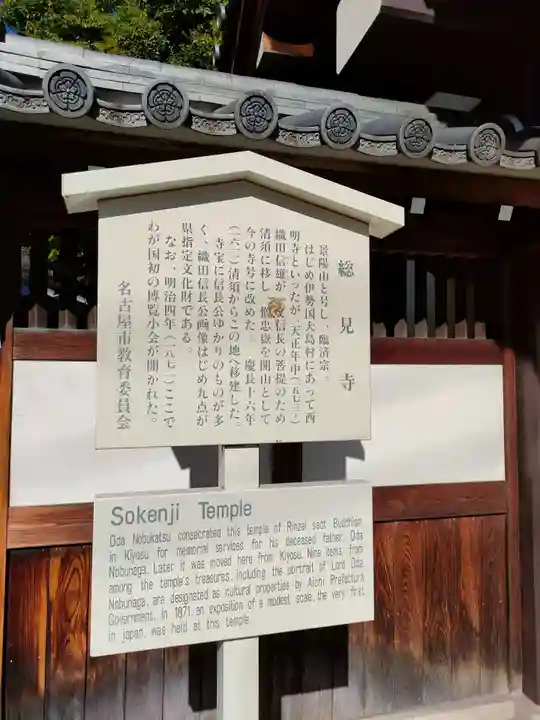 総見寺
景陽山と号し、臨済宗。
はじめ伊勢国大島村にあって西
明寺といったが、天正年中(一五七三)
織田信雄が 信長の菩提のため
清須に移し 忠嶽を開山として
今の寺号に改めた。慶長十六年
(一六一一)清須からこの地へ移建した。
寺宝に信長公ゆかりのものが多
く、織田信長公画像はじめ九点が
県指定文化財である。
なお、明治四年(一八七一)ここで
わが国初の博覧小会が開かれた。
名古屋市教育委員会
Sokenji Temple
Oda Nobukatsu consecrated this temple of Rinzai sect Buddhism
in Kiyosu for memorial services for his deceased father, Oda
Nobunaga. Later it was moved here from Kiyosu. Nine items from
among the temple's treasures, including the portrait of Lord Oda
Nobunaga, are designated as cultural properties by Aichi Prefectural
Government. In 1871, an exposition of a modest scale, the very first
in Japan, was held at this temple.